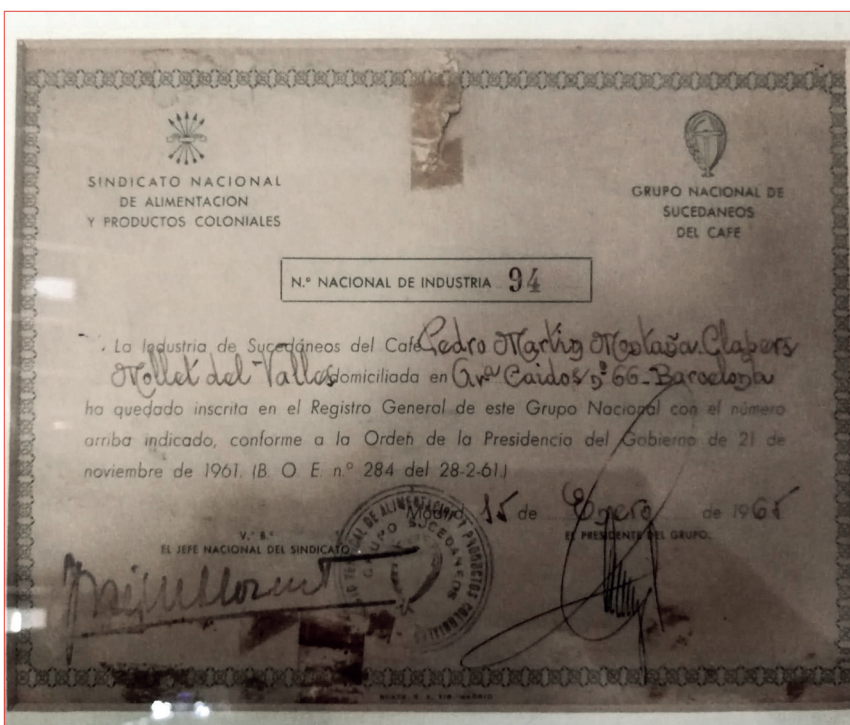 SINDICATO NACIONAL
DE ALIMENTACION
Y PRODUCTOS COLONIALES
GRUPO NACIONAL DE
SUCEDANEOS
DEL CAFE
N.º NACIONAL DE INDUSTRIA 94
La Industria de Sucedáneos del Café Pedro Martin Montaña Clapers
Mollet del Valles domiciliada en Avª Caidos nº 66-Barcelona
ha quedado inscrita en el Registro General de este Grupo Nacional con el número
arriba indicado, conforme a la Orden de la Presidencia del Gobierno de 21 de
noviembre de 1961. (B. O E. n.º 284 del 28-2-61.)
Madrid 15 de Enero de 1965
V.º B.º
EL JEFE NACIONAL DEL SINDICATO
EL PRESIDENTE DEL GRUPO.